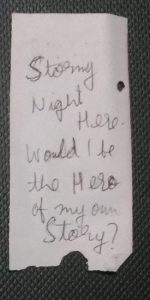 Stormy
Night
Here.
Would I be
the Hero
of my own
Story?